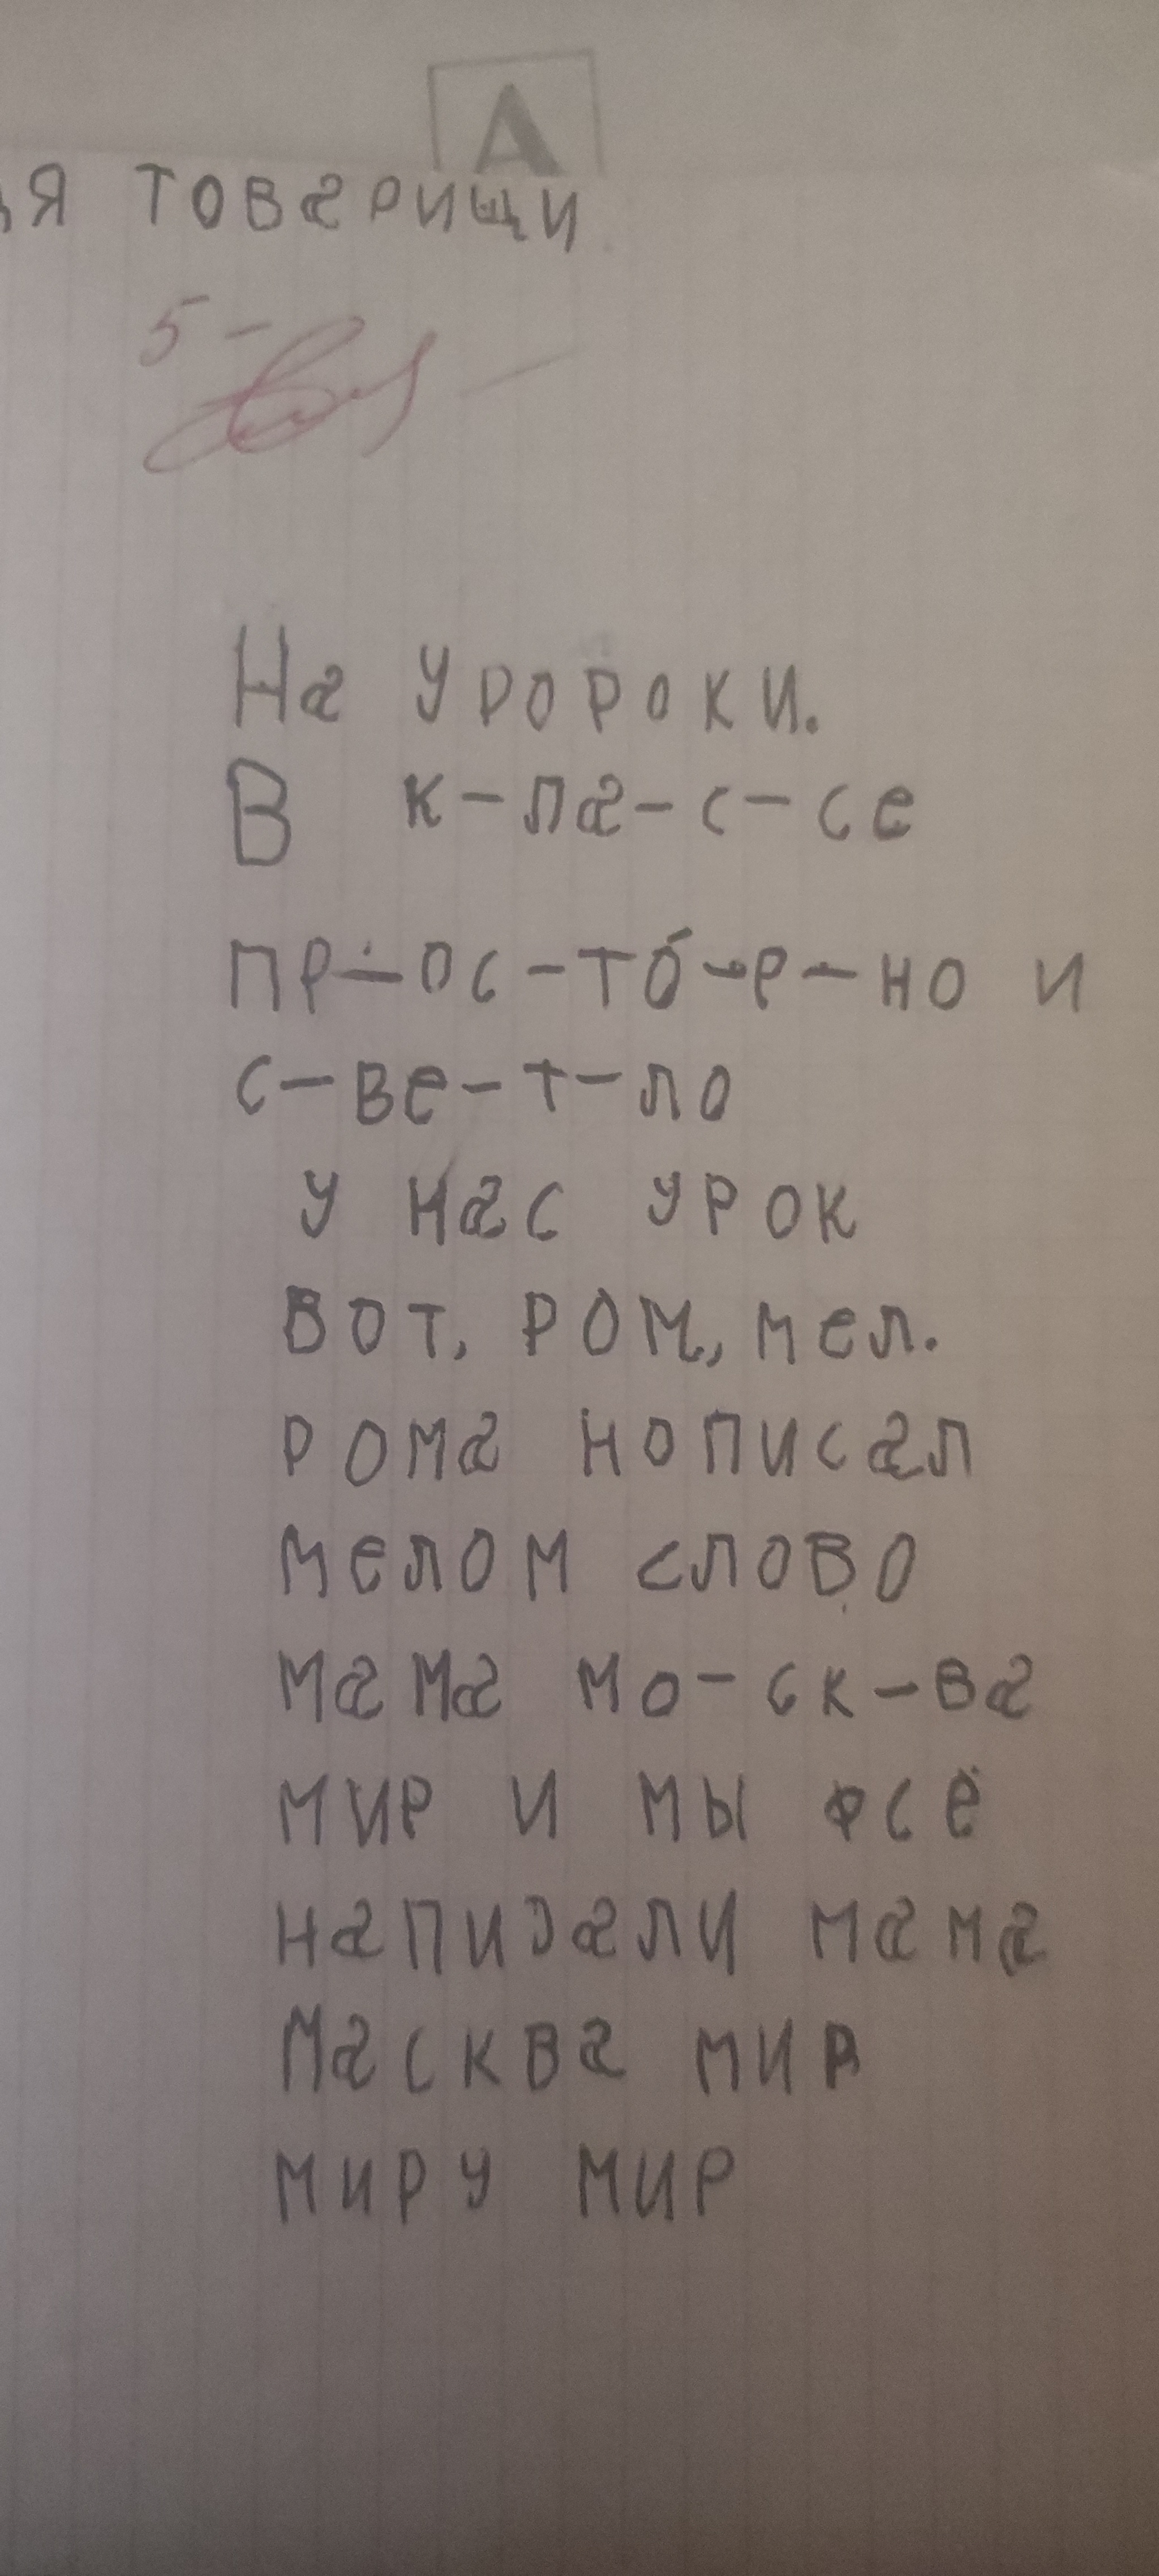 А
я товарищи
5-
На уророки.
В к-ла-с-се
пр-ос-то́-р-но и
с-ве-т-ло
у нас урок
вот, ром, мел.
рома нописал
мелом слово
мама мо-ск-ва
мир и мы фсё
написали мама
масква мир
миру мир